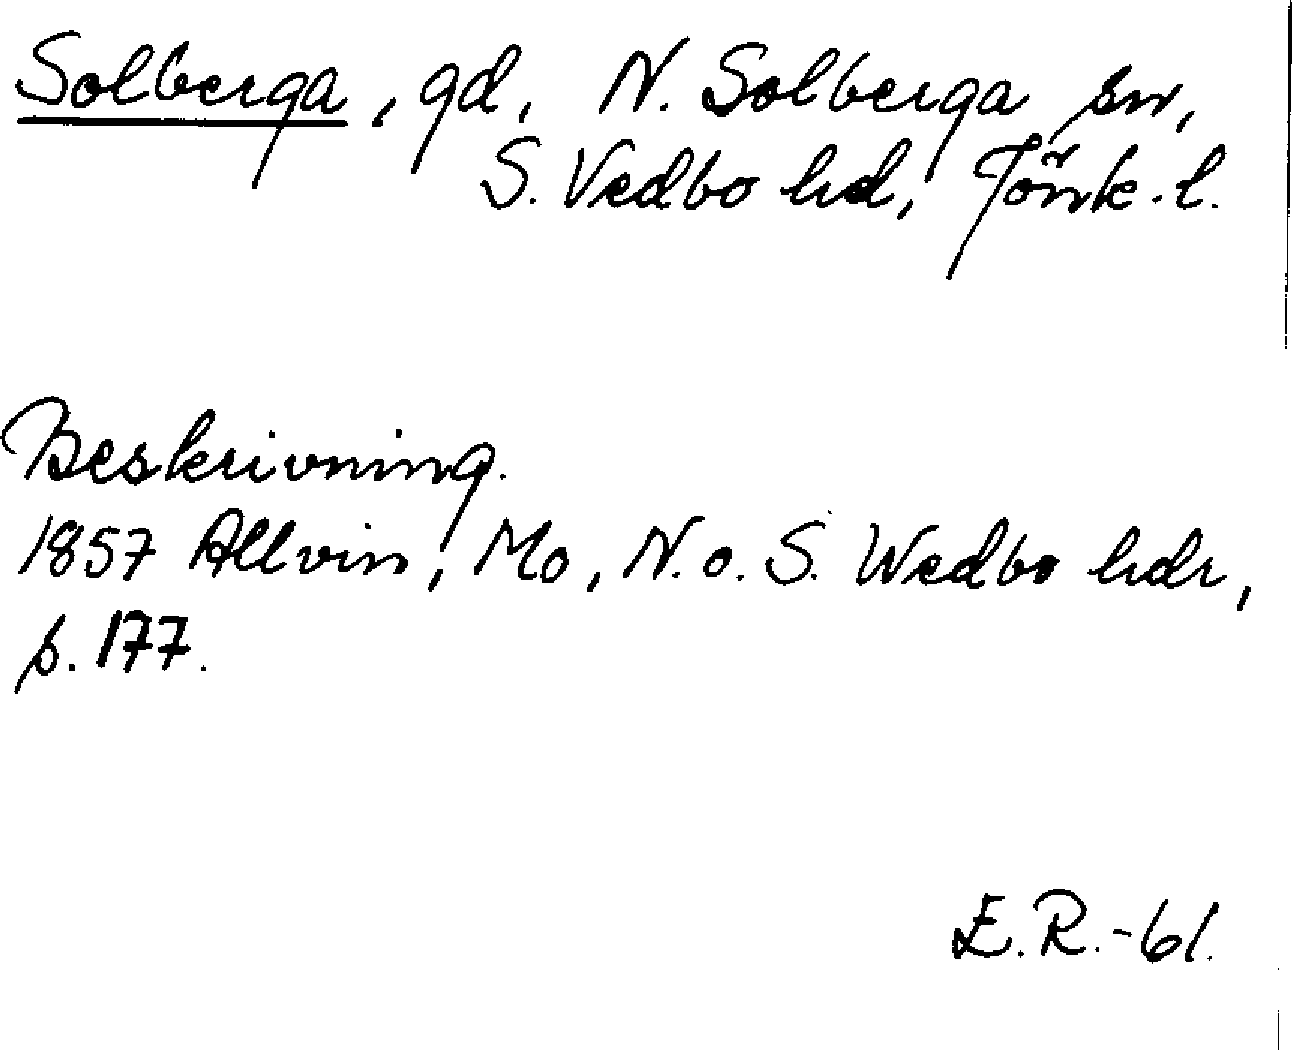 Solberga, gd, N. Solberga sn,
S. Vedbo hd, Jönk. l.
Beskrivning.
1857 Allvin, Mo, N. o. S. Wedbo hdr,
s. 177.
E.R.-61.